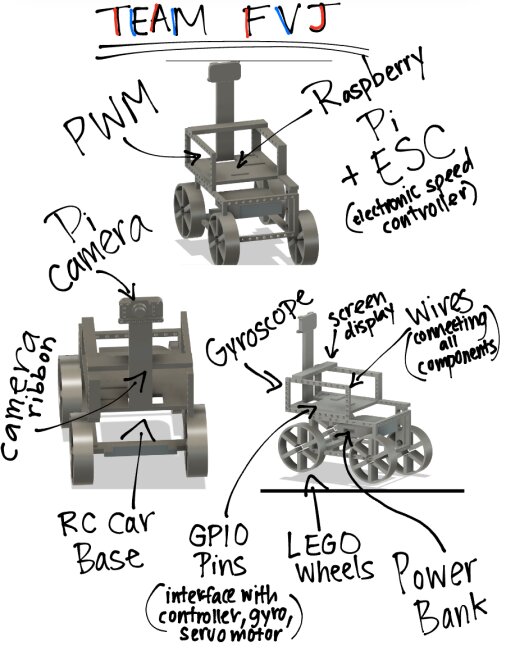 TEAM FVJ
PWM
Raspberry
Pi
+ ESC
(electronic speed
controller)
Pi
camera
camera
ribbon
Gyroscope
screen
display
Wires
(connecting
all
components)
RC Car
Base
GPIO
Pins
(interface with
controller, gyro,
servo motor)
LEGO
Wheels
Power
Bank